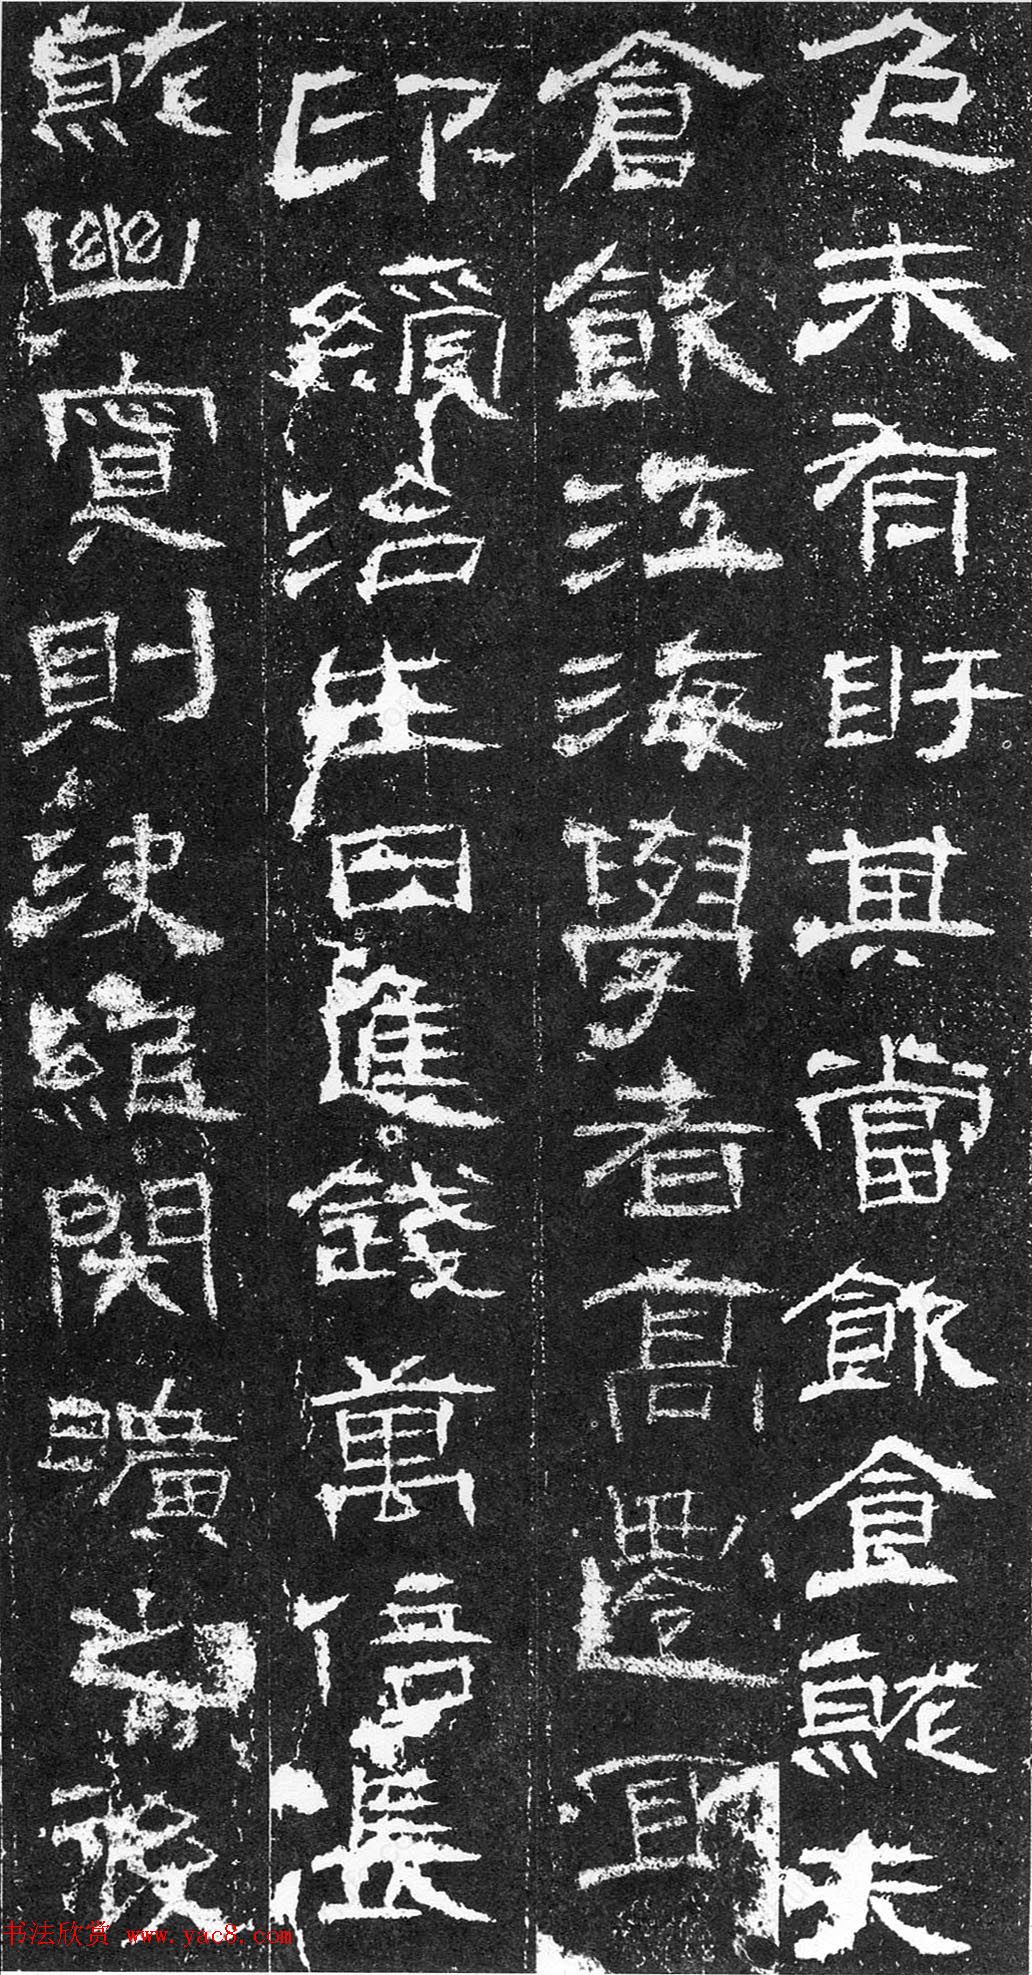 色未有盱其當飲食就夫
倉飲江海學者高遷宜
印綬治生日進錢萬倍長
就幽冥則決絕閉曠之後
书法欣赏 www.yac8.com